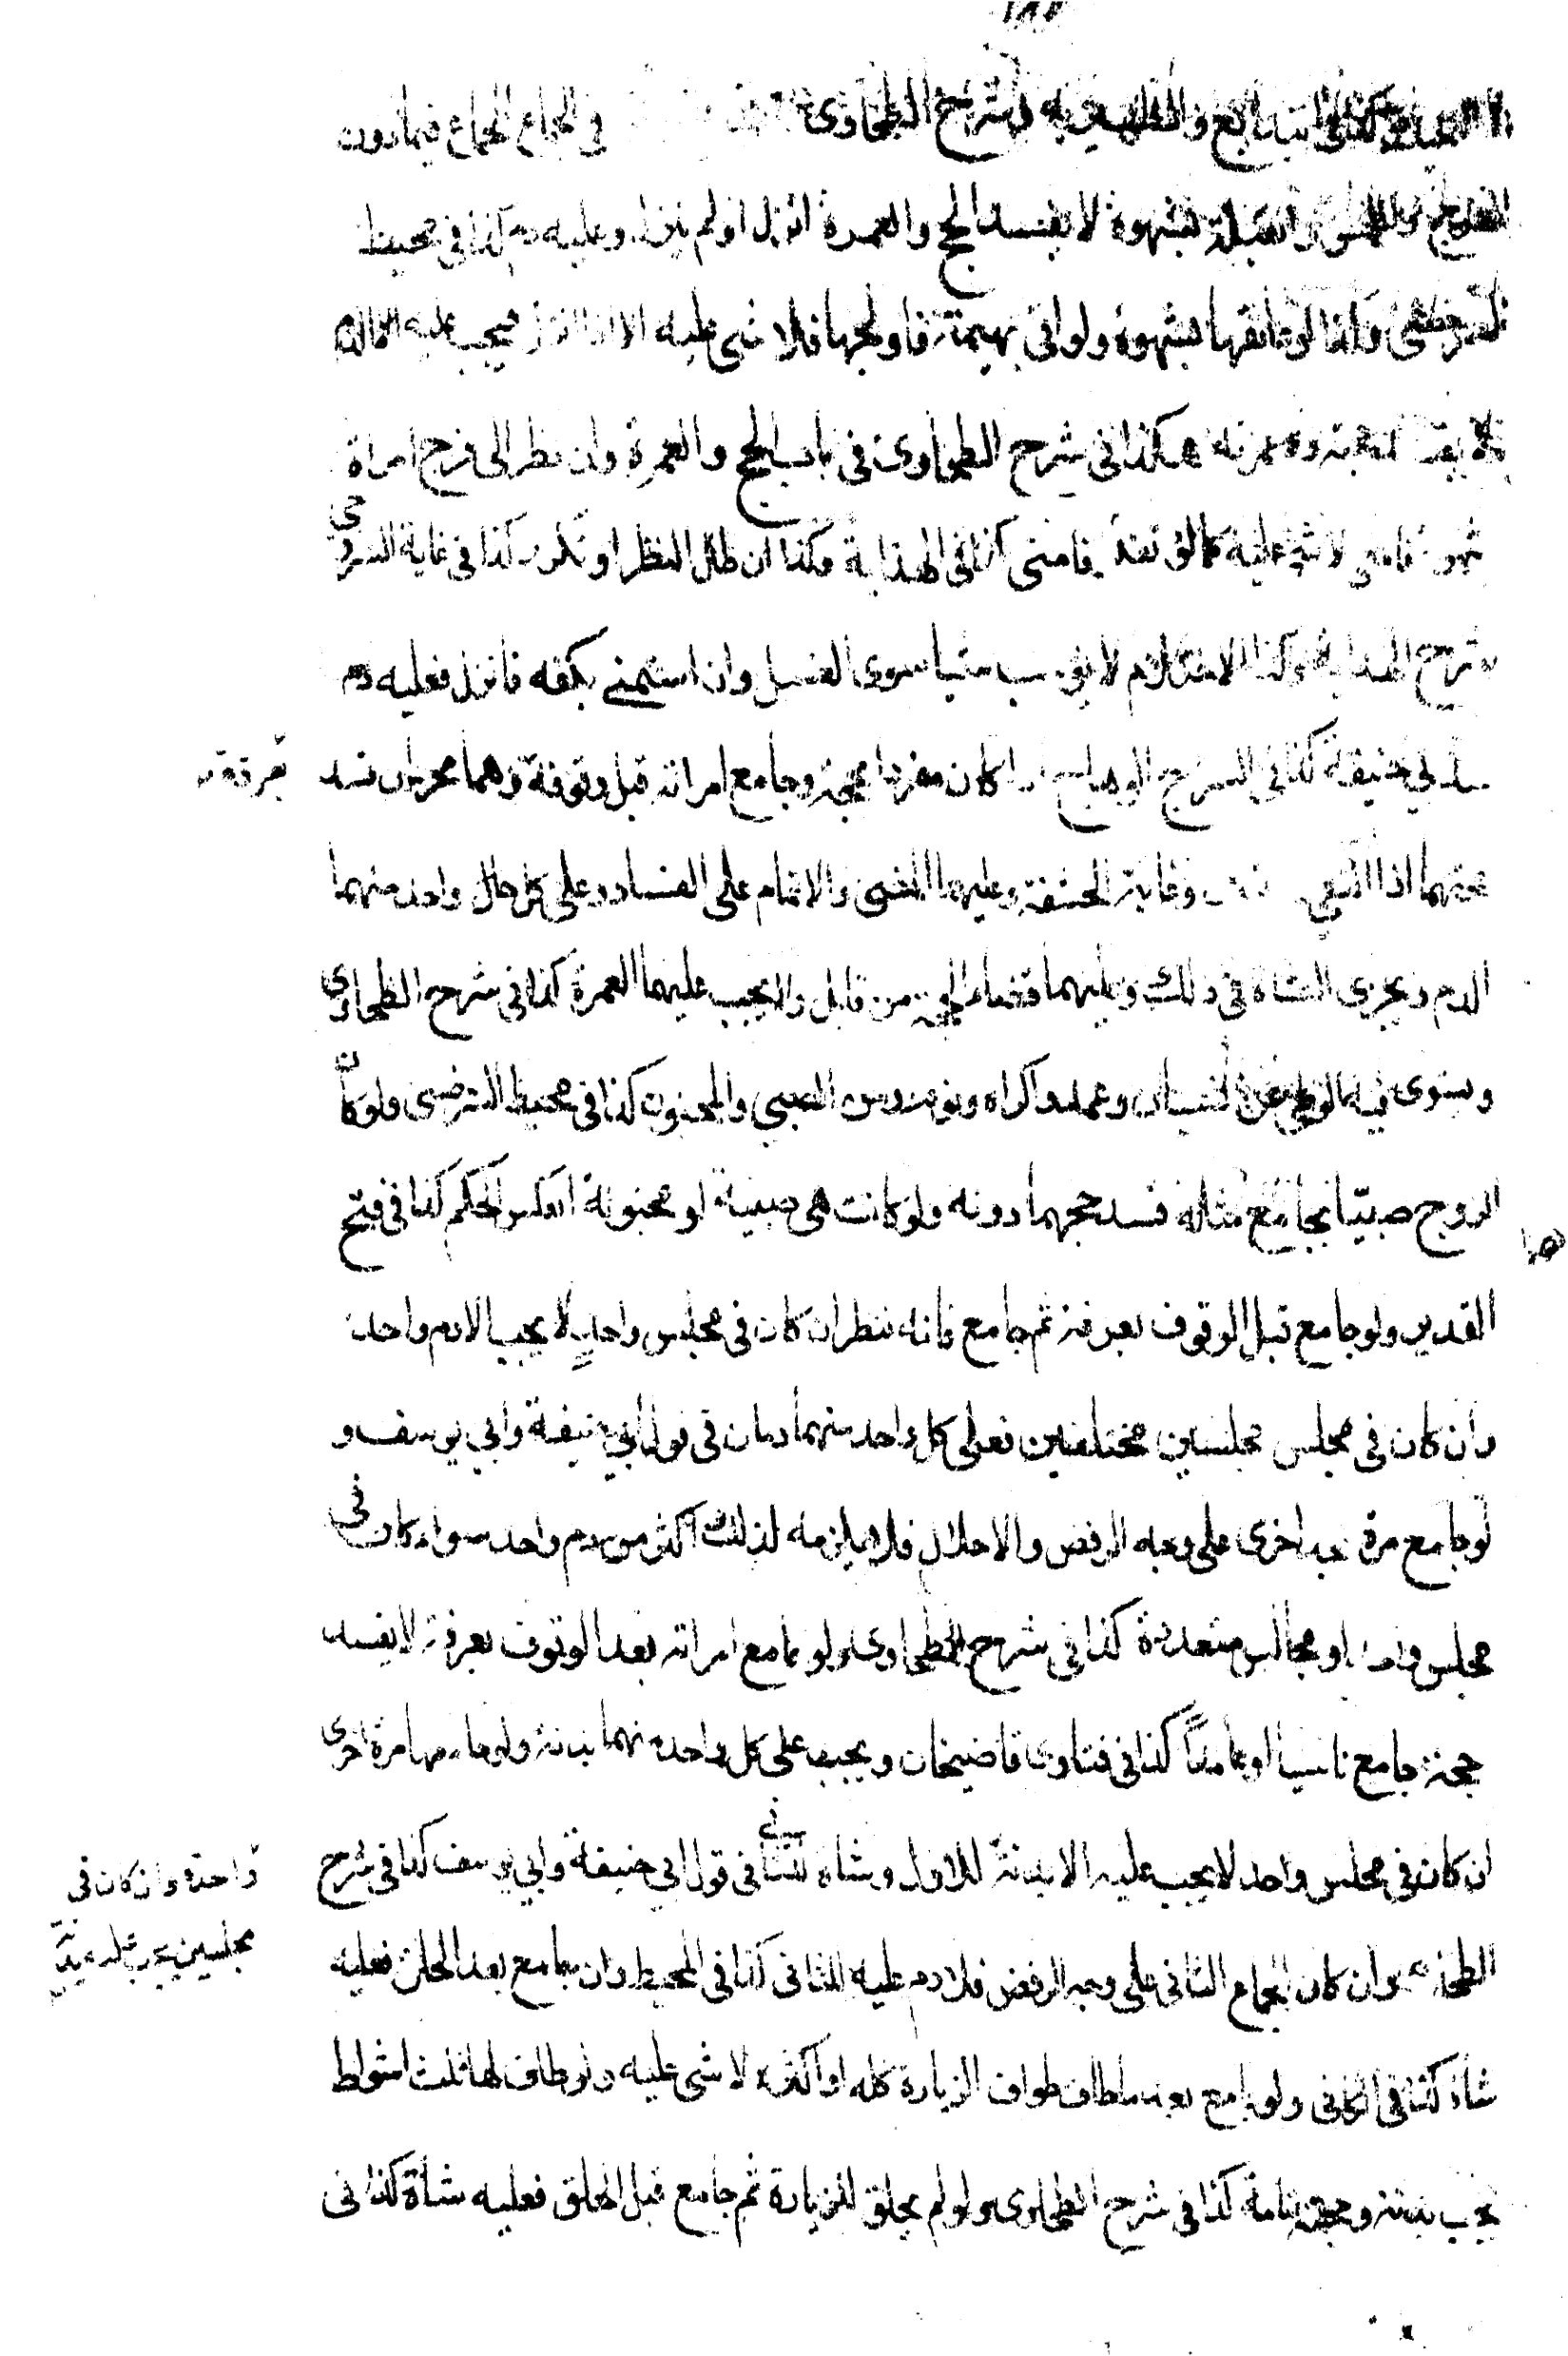 والظهيرية وشرح الطحاوى في الجماع الجماع فيمادون
الفرج واللمس والقبلة بشهوة لا يفسد الحج والعمرة انزل اولم ينزل وعليه دم كذا فى محيط
السرخسى وكذا لو عانقها بشهوة ولواتى بهيمة فاولجها فلا شى عليه الا اذا انزل فيجب عليه الدم
ولا يفسد حجته وعمرته هكذا فى شرح الطحاوى فى باب الحج والعمرة وان نظر الى فرج امراة
بشهوة فامنى لا شى عليه كما لو تفكر فامنى كذا فى الهداية وكذا ان طال النظر او تكرر كذا فى غاية السروجى
شرح الهداية وكذا الاحتلام لا يوجب شيا سوى الغسل وان استمنى بكفه فانزل فعليه دم
عند ابي حنيفة كذا فى السراج الوهاج اذا كان مفردا بحجة وجامع امراته قبل وقوفه وهما محرمان فسد
بعرفة
حجتهما اذا التقى وغابت الحشفة وعليهما المضى والاتمام على الفساد وعلى كل حال واحد منهما
الدم ويجزى الشاة فى ذلك وعليهما قضاء الحجة من قابل ولا يجب عليهما العمرة كذا فى شرح الطحاوى
ويستوى فيه الوطى عن نسيان وعمد واكراه ونوم ومن الصبى والمجنون كذا فى محيط السرخسى ولو كان
الزوج صبيّا يجامع مثله فسد حجهما دونه ولو كانت هى صبية او مجنونة انعكس الحكم كذا فى فتح
القدير ولو جامع قبل الوقوف بعرفة ثم جامع فانه ينظر ان كان فى مجلس واحد لا يجب الا دم واحد
وان كان فى مجلس مجلسين مختلفين فعلى كل واحد منهما دمان فى قول ابي حنيفة وابي يوسف و
لو جامع مرة بعد اخرى على وجه الرفض والاحلال فلا يلزمه لذلك اكثر من دم واحد سواء كان فى
مجلس واحد او مجالس متعددة كذا فى شرح الطحاوى ولو جامع امراته بعد الوقوف بعرفة لا يفسد
حجته جامع ناسيا او عامداً كذا فى فتاوى قاضيخان ويجب على كل واحد منهما بدنة ولو جامعها مرة اخرى
ان كان فى مجلس واحد لا يجب عليه الا بدنة للاول وشاة للثانى فى قول ابي حنيفة وابي يوسف كذا فى شرح
واحدة وان كان فى
مجلسين يجب عليه بدنة
الطحاوى وان كان الجماع الثانى على وجه الرفض فلا دم عليه للثانى كذا فى المحيط وان جامع بعد الحلق فعليه
شاة كذا فى الكافى ولو جامع بعد ما طاف طواف الزيارة كله او اكثره لا شى عليه ولو طاف لها ثلث اشواط
يجب بدنة وحجته تامة كذا فى شرح الطحاوى ولو لم يحلق للزيارة ثم جامع قبل الحلق فعليه شاة كذا فى